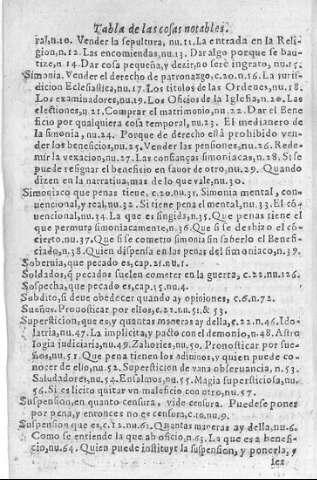 Tabla de las cosas notables.
ral, n.10. Vender la sepultura, nu.11. La entrada en la Reli-
gion, n.12. Las encomiendas, nu.13. Dar algo porque se bau-
tize, n.14. Dar cosa pequeña, y dezir, no serè ingrato, nu.15.
Simonia. Vender el derecho de patronazgo, c.20. n.16. La juris-
dicion Eclesiastica, nu.17. Los titulos de las Ordenes, nu.18.
Los examinadores, nu.19. Los Oficios de la Iglesia, n.20. Las
elecciones, nu.21. Comprar el matrimonio, nu.22. Dar el Bene
ficio por qualquiera cosa temporal, nu.23. El medianero de
la simonia, nu.24. Porque de derecho està prohibido ven-
der los beneficios, nu.25. Vender las pensiones, nu.26. Rede-
mir la vexacion, nu.27. Las confianças simoniacas, n.28. Si se
puede resignar el beneficio en fauor de otro, nu.29. Quando
dizen en la narratiua, mas de lo que vale, nu.30.
Simoniaco que penas tiene, c.20. nu.31. Simonia mental, con-
uencional, y real, nu.32. Si tiene pena el mental, nu.33. El cõ-
uencional, nu.34. La que es fingida, n.35. Que penas tiene el
que permuta simoniacamente, n.36. Que si se deshizo el cõ-
cierto, nu.37. Que si se cometio simonia sin saberlo el Benefi-
ciado, n.38. Quien dispensa en las penas del simoniaco, n.39.
Soberuia, que pecado es, cap.21. nu.1.
Soldados, q̃ pecados suelen cometer en la guerra, c.22. nu.126.
Sospecha, que pecado es, cap.15. nu.4.
Subdito, si deue obedecer quando ay opiniones, c.6. n.72.
Sueños. Pronosticar por ellos, c.21. nu.51. & 53.
Supersticion, que es, y quantas maneras ay della, c.22. n.46. Ido-
latria, nu.47. La implicita, y pacto con el demonio, n.48. Astro
logia judiciaria, nu.49. Zahories, nu.50. Pronosticar por sue-
ños, nu.51. Que pena tienen los adiuinos, y quien puede co-
nocer de ello, nu.52. Supersticion de vana obseruancia, n.53.
Saludadores, nu.54. Ensalmos, nu.55. Magia supersticiosa, nu.
56. Si es licito quitar vn maleficio con otro, nu.57.
Suspension, en quanto censura, vide censura. Puedese poner
por pena, y entonces no es censura, c.10. nu.9.
Suspension que es, c.12. nu.61. Quantas maneras ay della, nu.6.
Como se entiende la que ab oficio, n.63. La que es a benefi-
cio, nu.64. Quien puede instituyr la suspension, y ponerla, y